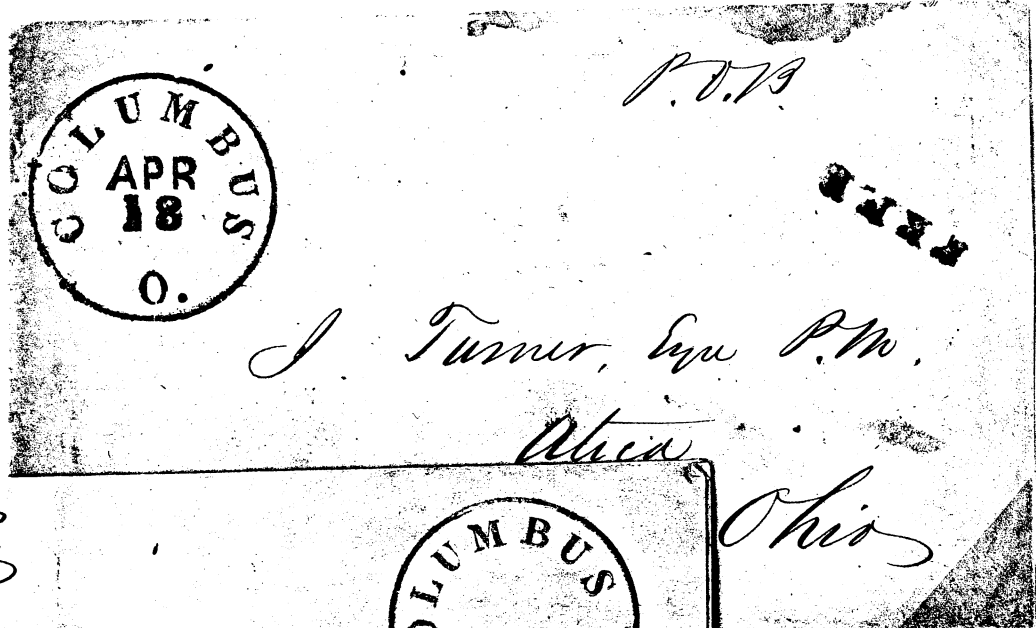 P.O.B.
COLUMBUS
APR
18
O.
FREE
J Turner, Esqr P.M.
Attica
Ohio
COLUMBUS